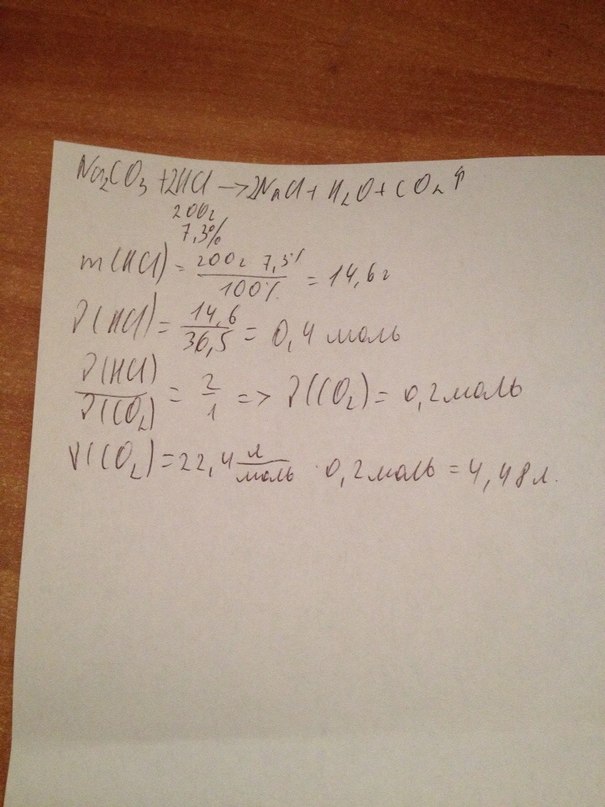 Na₂CO₃ + 2HCl → 2NaCl + H₂O + CO₂↑
200г
7,3%
m(HCl) = 200г 7,3% / 100% = 14,6г
ν(HCl) = 14,6 / 36,5 = 0,4 моль
ν(HCl) / ν(CO₂) = 2 / 1 => ν(CO₂) = 0,2 моль
V(CO₂) = 22,4 л/моль · 0,2 моль = 4,48 л.